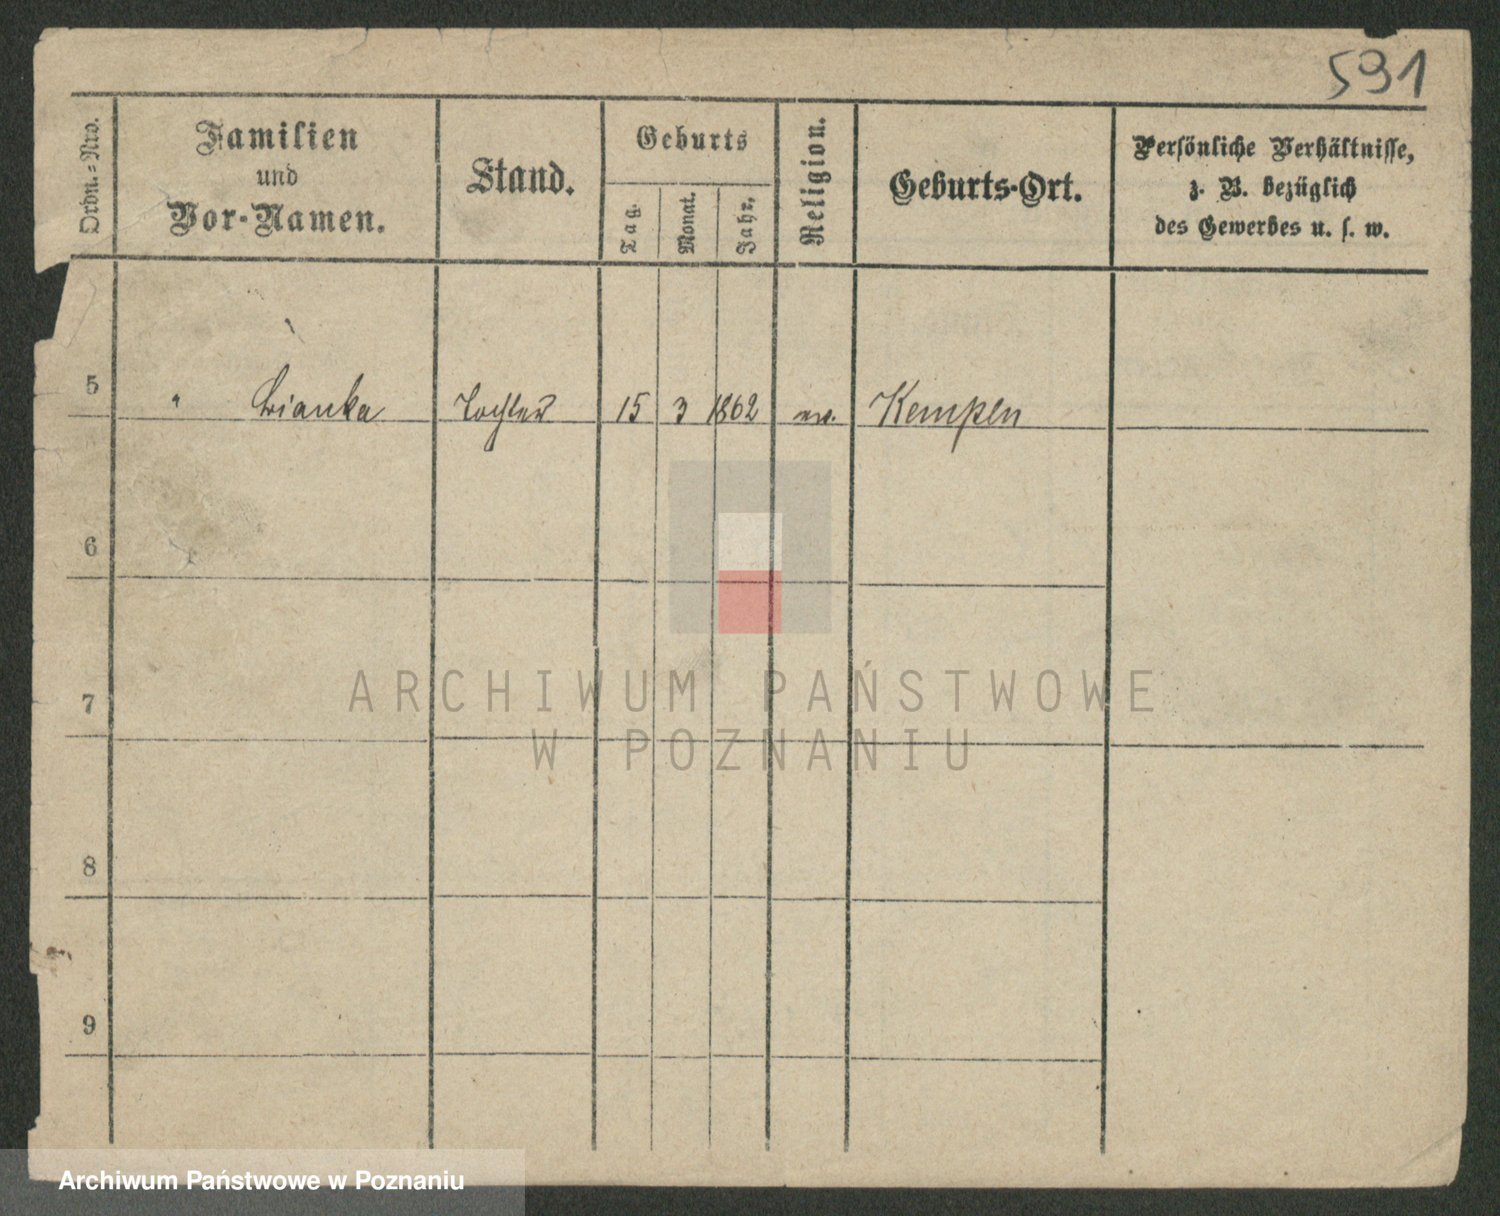 591
Ordn.-Nro.
Familien
und
Vor-Namen.
Stand.
Geburts
Tag.
Monat.
Jahr.
Religion.
Geburts-Ort.
Persönliche Verhältnisse,
z. B. bezüglich
des Gewerbes u. s. w.
5 " Bianka Tochter 15 3 1862 Kempen
6
7
8
9
ARCHIWUM PAŃSTWOWE
W POZNANIU
Archiwum Państwowe w Poznaniu